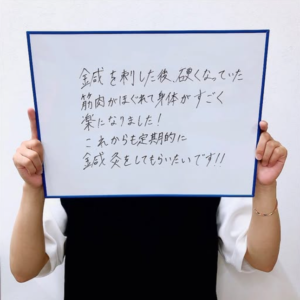 鍼を刺した後、硬くなっていた
筋肉がほぐれて身体がすごく
楽になりました!
これからも定期的に
鍼灸をしてもらいたいです!!